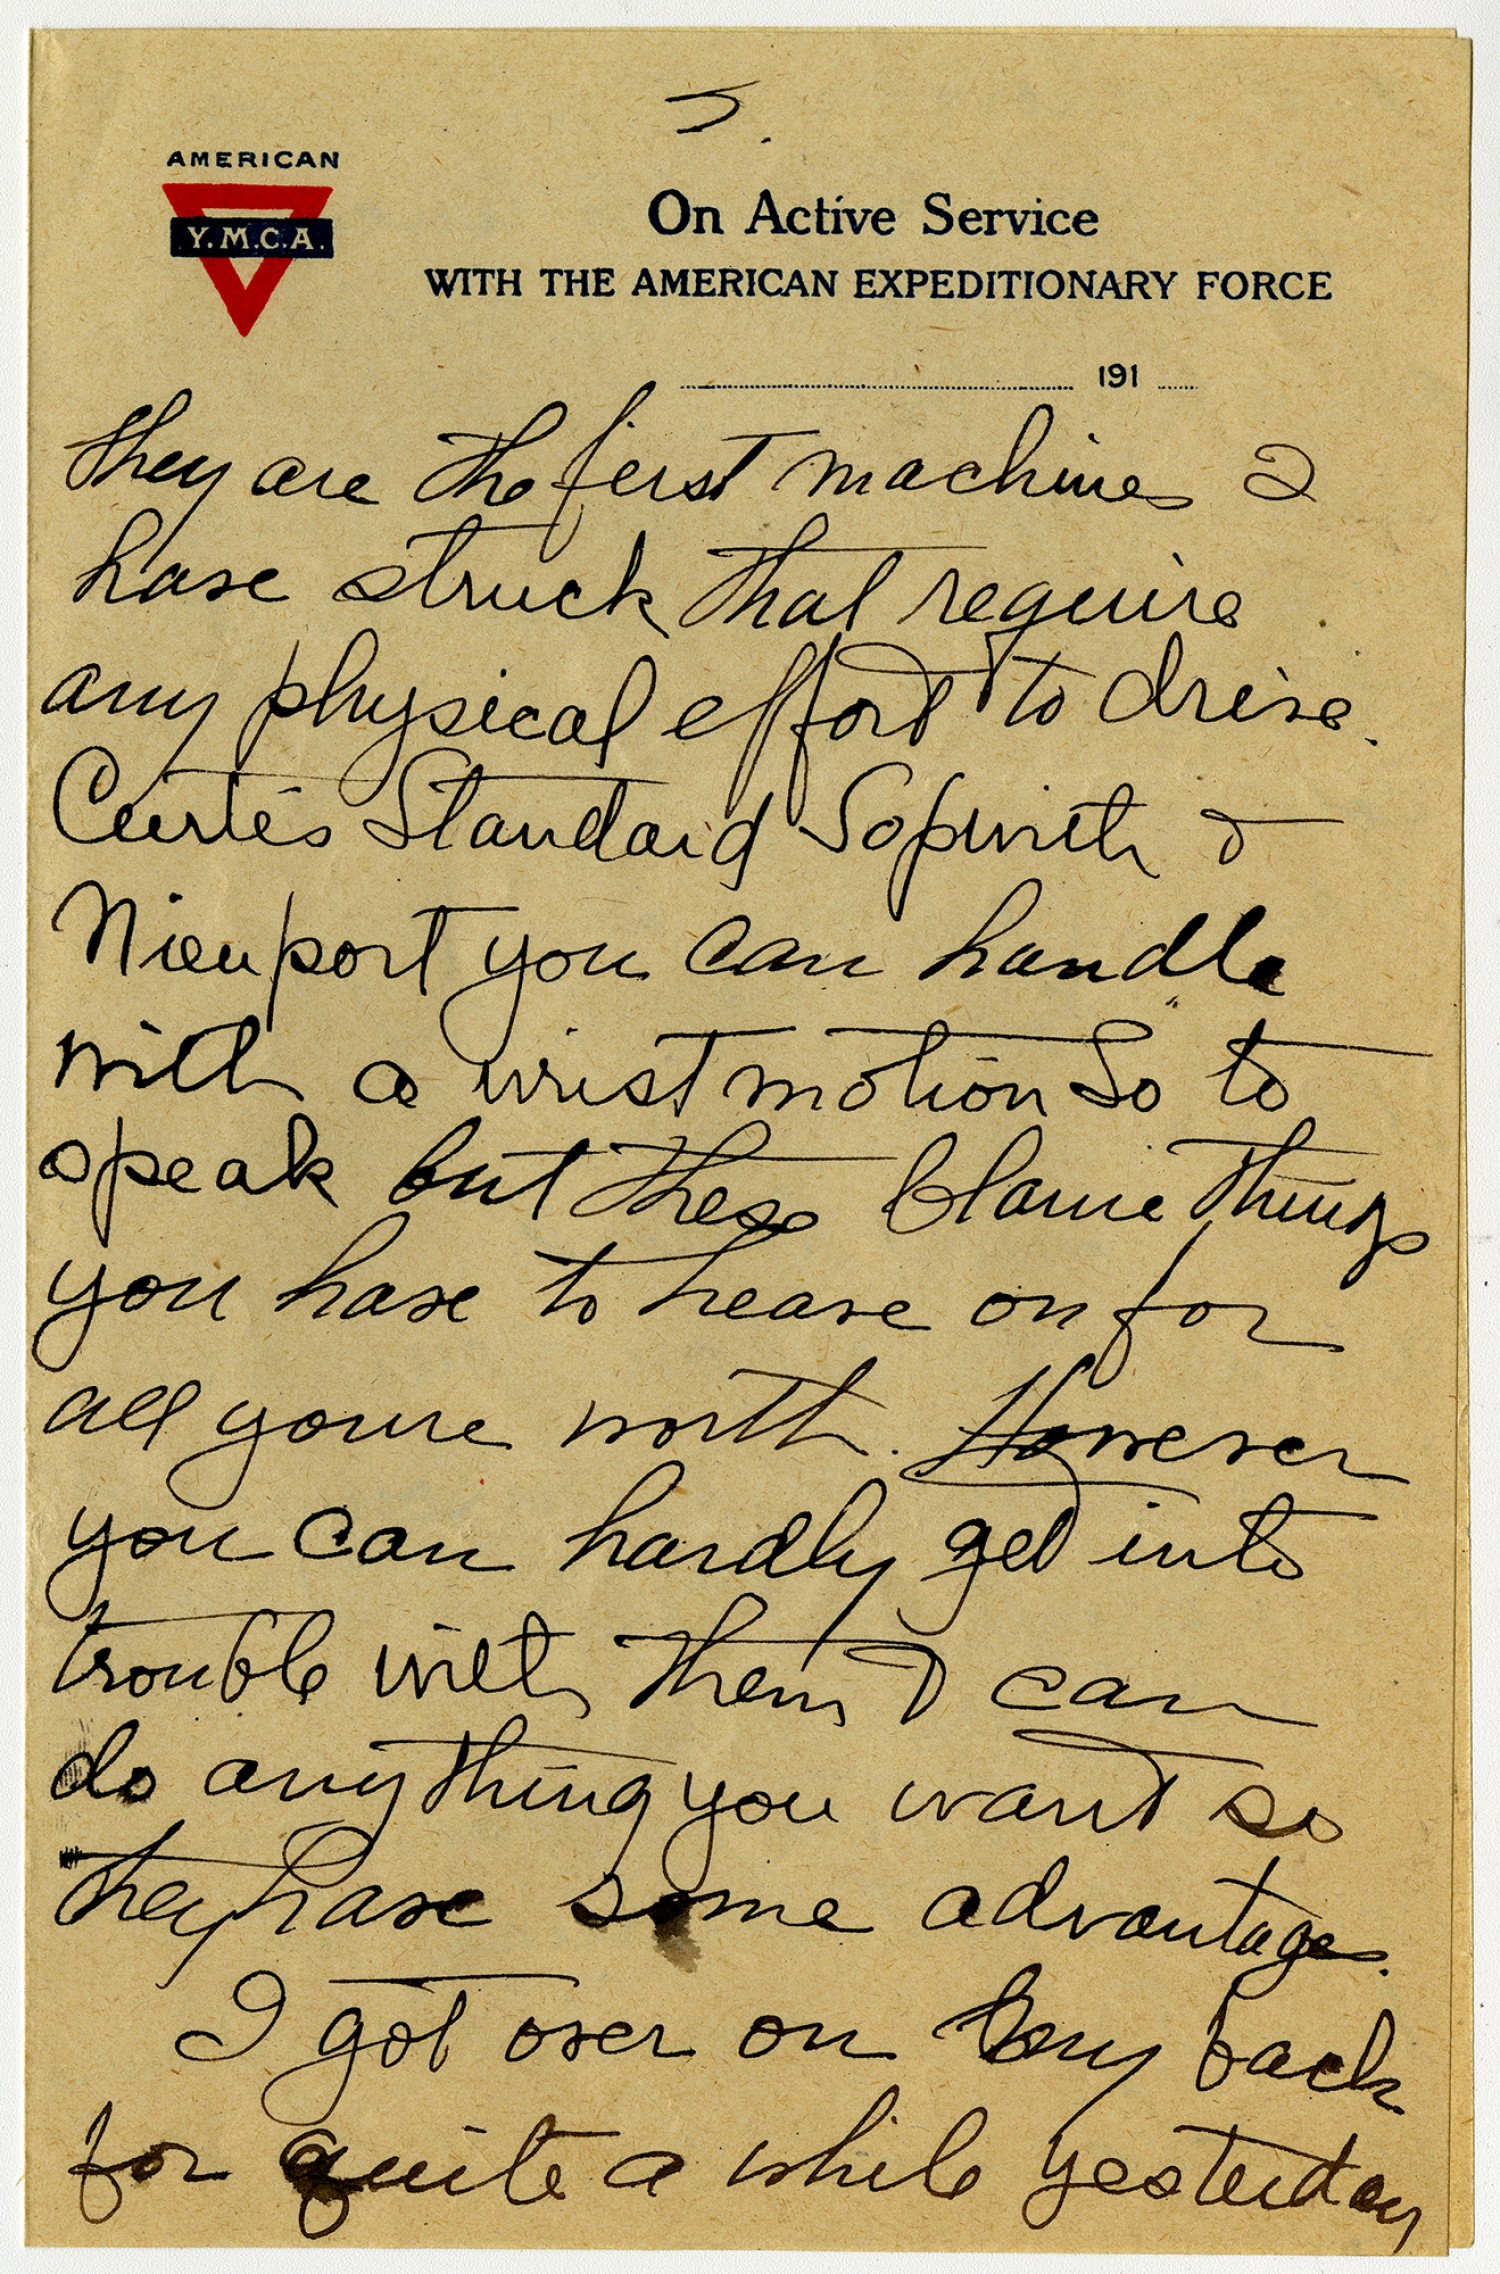 5.
AMERICAN
Y.M.C.A.
On Active Service
WITH THE AMERICAN EXPEDITIONARY FORCE
191
they are the first machines I
have struck that require
any physical effort to drive.
Curtis Standard Sopwith &
Nieuport you can handle
with a wrist motion so to
speak but these blame things
you have to heave on for
all youre worth. However
you can hardly get into
trouble with them & can
do anything you want so
they have some advantage.
I got over on my back
for quite a while yesterday